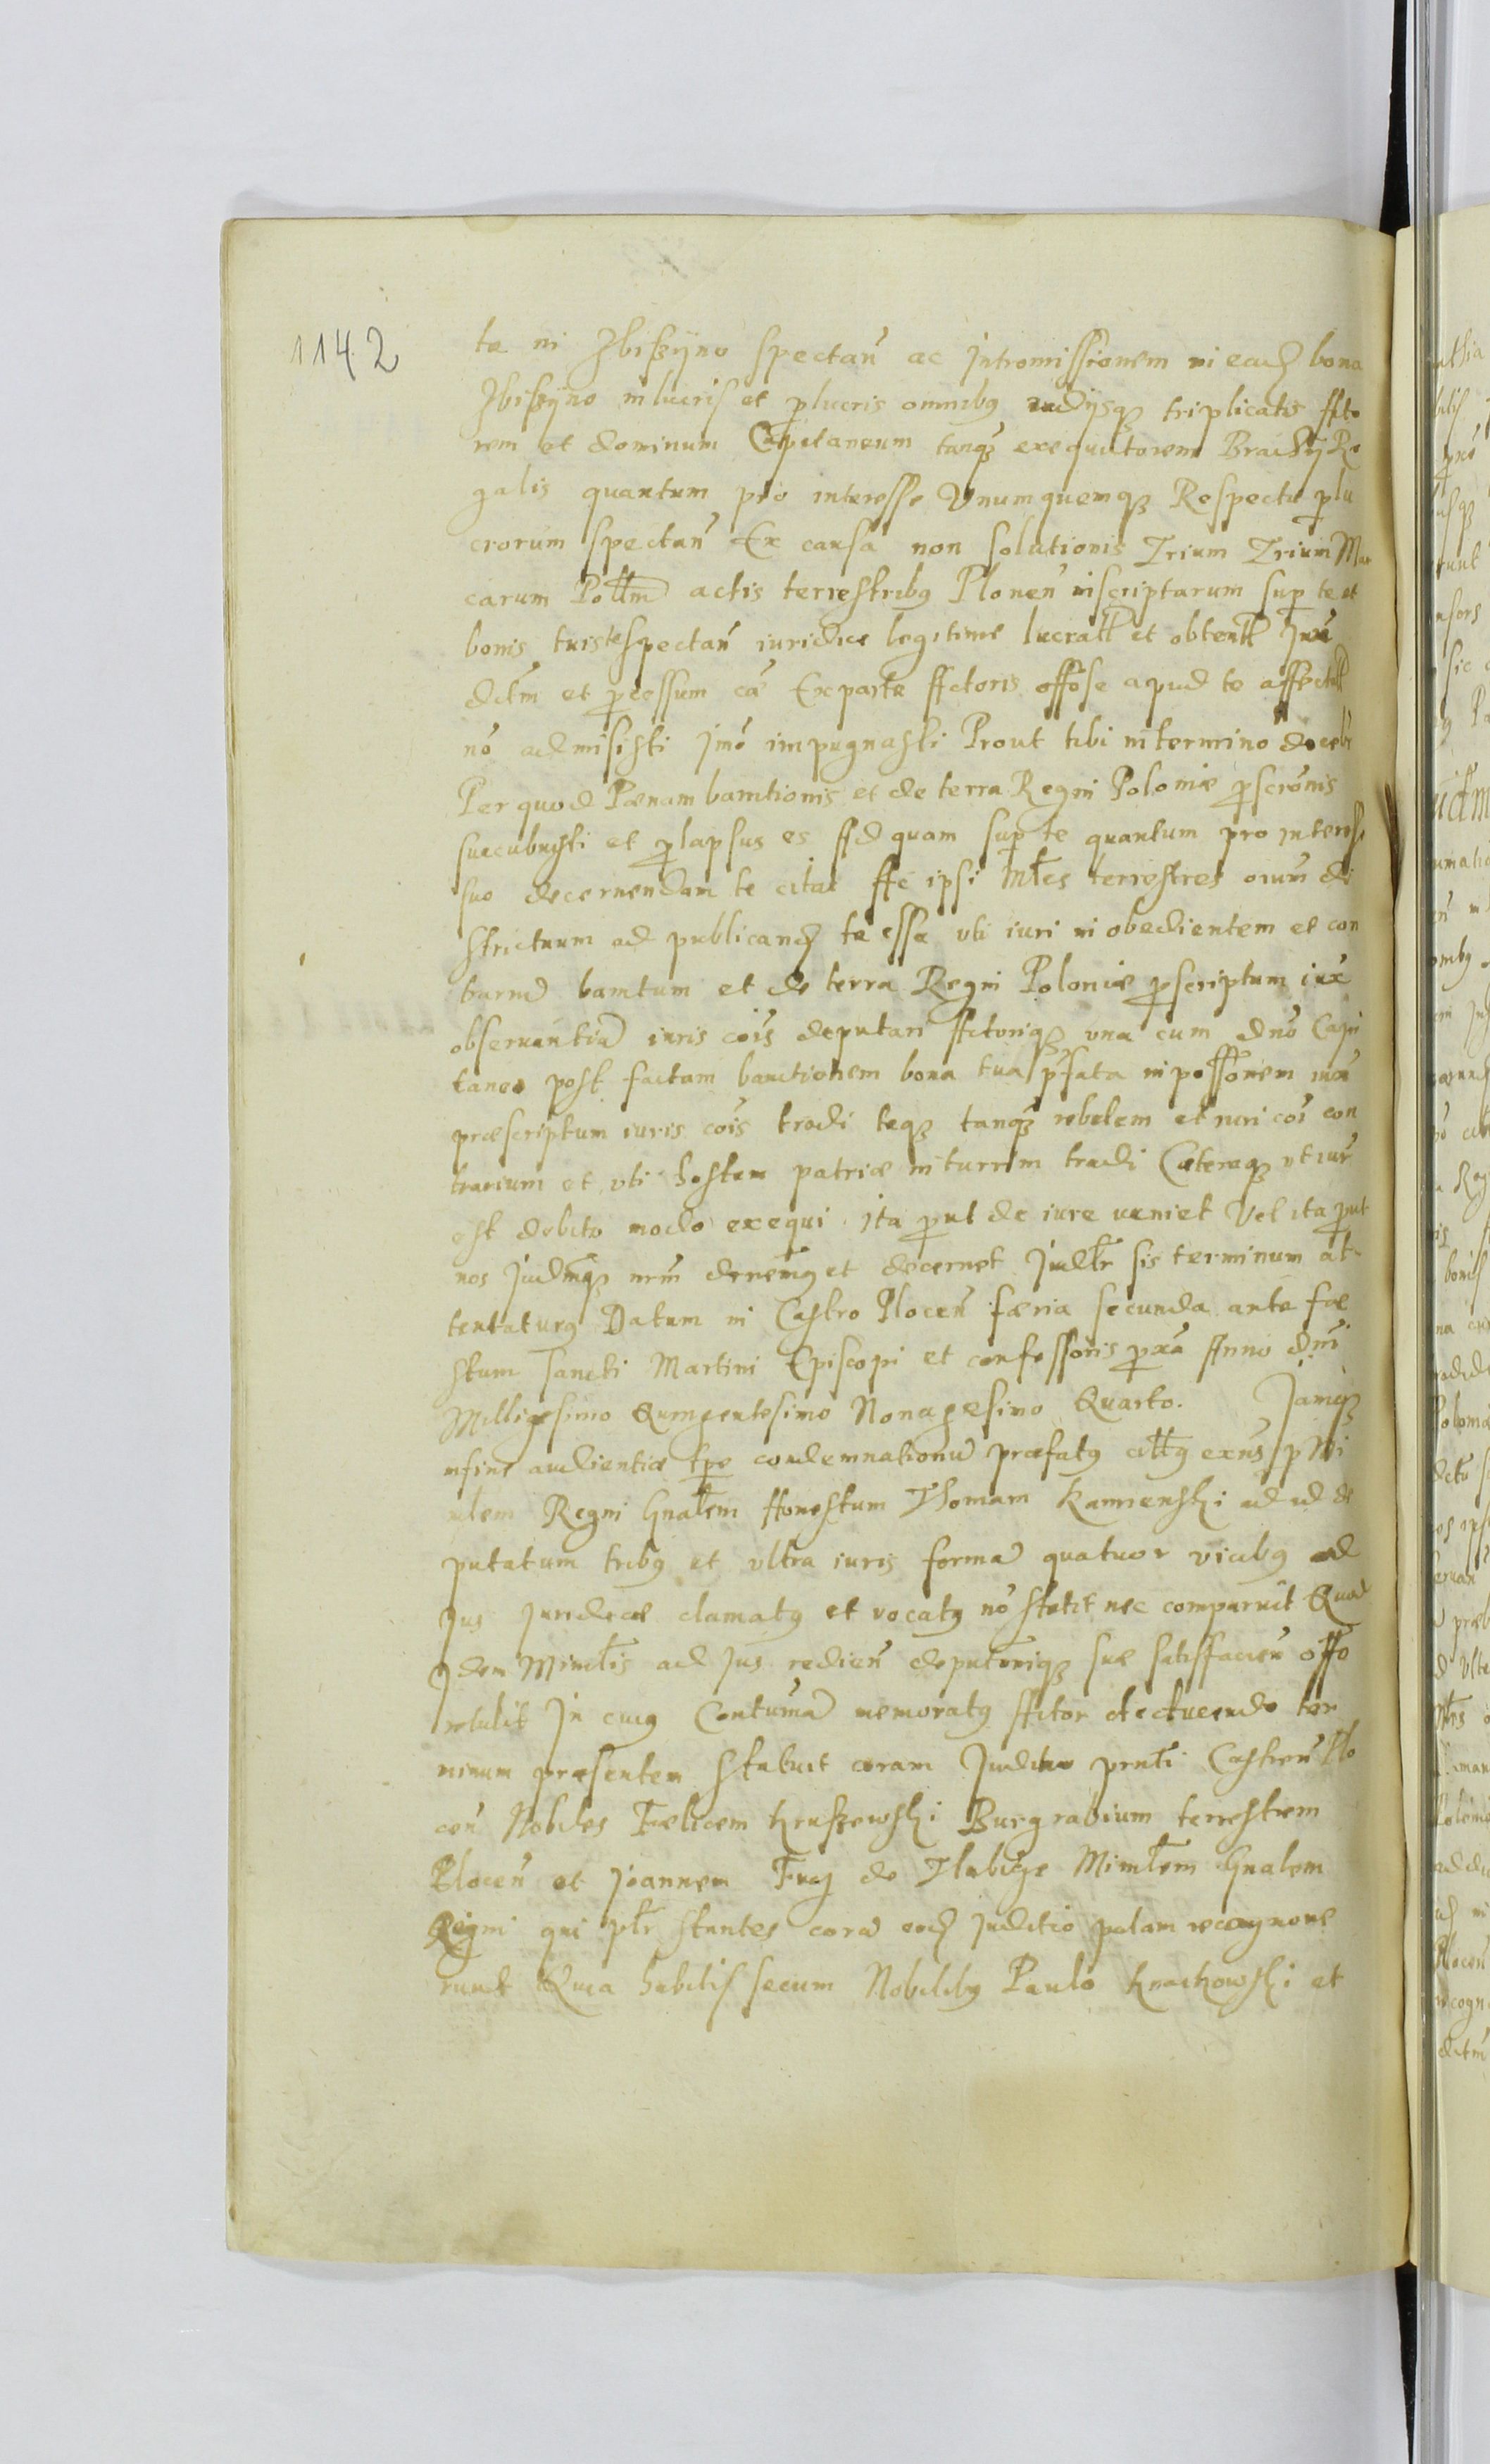 1142
te in Zbiszyno spectan̄ ac Intromissionem in eadꝫ bona
Zbiszyno in lucris et ꝑlucris omnibꝯ vadijsqꝫ triplicatis Acto
rem et dominum Capitaneum tanqꝫ exequutorem Brachij Re
galis quantum pro interesse Vnumquemqꝫ Respectu ꝑlu
crorum spectan̄ Ex causa non solutionis Trium Trium Mar
carum Pollm actis terrestribꝯ Plonen̄ inscriptarum suꝑ te et
bonis tuis te spectan̄ iuridice legitime lucratt et obtentt Juxa
dctm et ꝓcessum eā Ex parte Actoris offose apud te affectatt
nō admisisti Jmō impugnasti Prout tibi in termino docebr
Per quod Pænam bannitionis et de terra Regni Poloniæ ꝓscrōnis
succubuisti et ꝓlapsus es Ad quam suꝑ te quantum pro interesse
suo decernendam te citat Ac ipsi Mltes terrestres oium di
strictuum ad publicandꝫ te esse vti iuri in obedientem et con
bannitum et de terra Regni Poloniæ ꝓscriptum iux
obseruantiā iuris cōis deputari Actoriqꝫ vna cum dnō Capi
taneo post factam banitionem bona tua p̄fata in possōnem iuxa
præscriptum iuris cōis tradi teqꝫ tanqꝫ rebelem et iuri cōi con
trarium et vti hostem patriæ in turrim tradi Cæteraqꝫ vt iur
est debito modo exequi ita ꝓut de iure veniet Vel ita ꝓut
nos Judmqꝫ nrm et decernet Judtr sis terminum at
tentaturꝯ Datum in Castro Plocen̄ færia secunda ante fæ
stum Sancti Martini Episcopi et confessoris ꝓxā Anno dnī
Milligesimo Quingentesimo Nonagesimo Quarto. Jamqꝫ
in fine audientiæ tꝑe condemnationū præfatꝯ cittꝯ exn̄s ꝑ Mi
ulem Regni Gnalem Honestum Thomam Kamienski ad id de
putatum tribꝯ et vltra iuris formā quatuor vicibꝯ ad
Jus Juridice clamatꝯ et vocatꝯ nō stetit nec comparuit Quod
Idem Minctlis ad Jus redien̄ deputōniqꝫ suæ satisfacien̄ offo
retulit In cuiꝯ Contumā memoratꝯ Actor ter
minum præsentem Statuit coram Juditio prnti Castren̄ Plo
cen̄ Nobiles Fælicem Kruszewski Burgrabium terrestrem
Plocen̄ et Joannem Fuy de Thubice Mimlem Gnalem
Regni qui ptr stantes corā eodꝫ Juditio palam recognoue
runt Quia habitis secum Nobilibꝯ Paulo Knachowski et